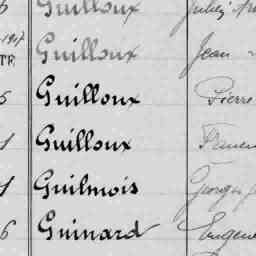 Guilloux
1917 Guilloux Jean
TE
5 Guilloux Pierre
1 Guilloux
1 Guilmois Georges
6 Guinard Eugène